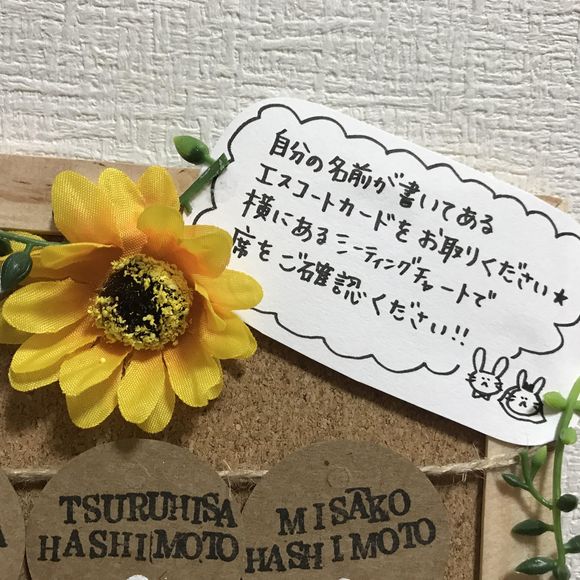 自分の名前が書いてある
エスコートカードをお取りください★
横にあるシーティングチャートで
席をご確認ください!!
TSURUHISA
HASHIMOTO
MISAKO
HASHIMOTO